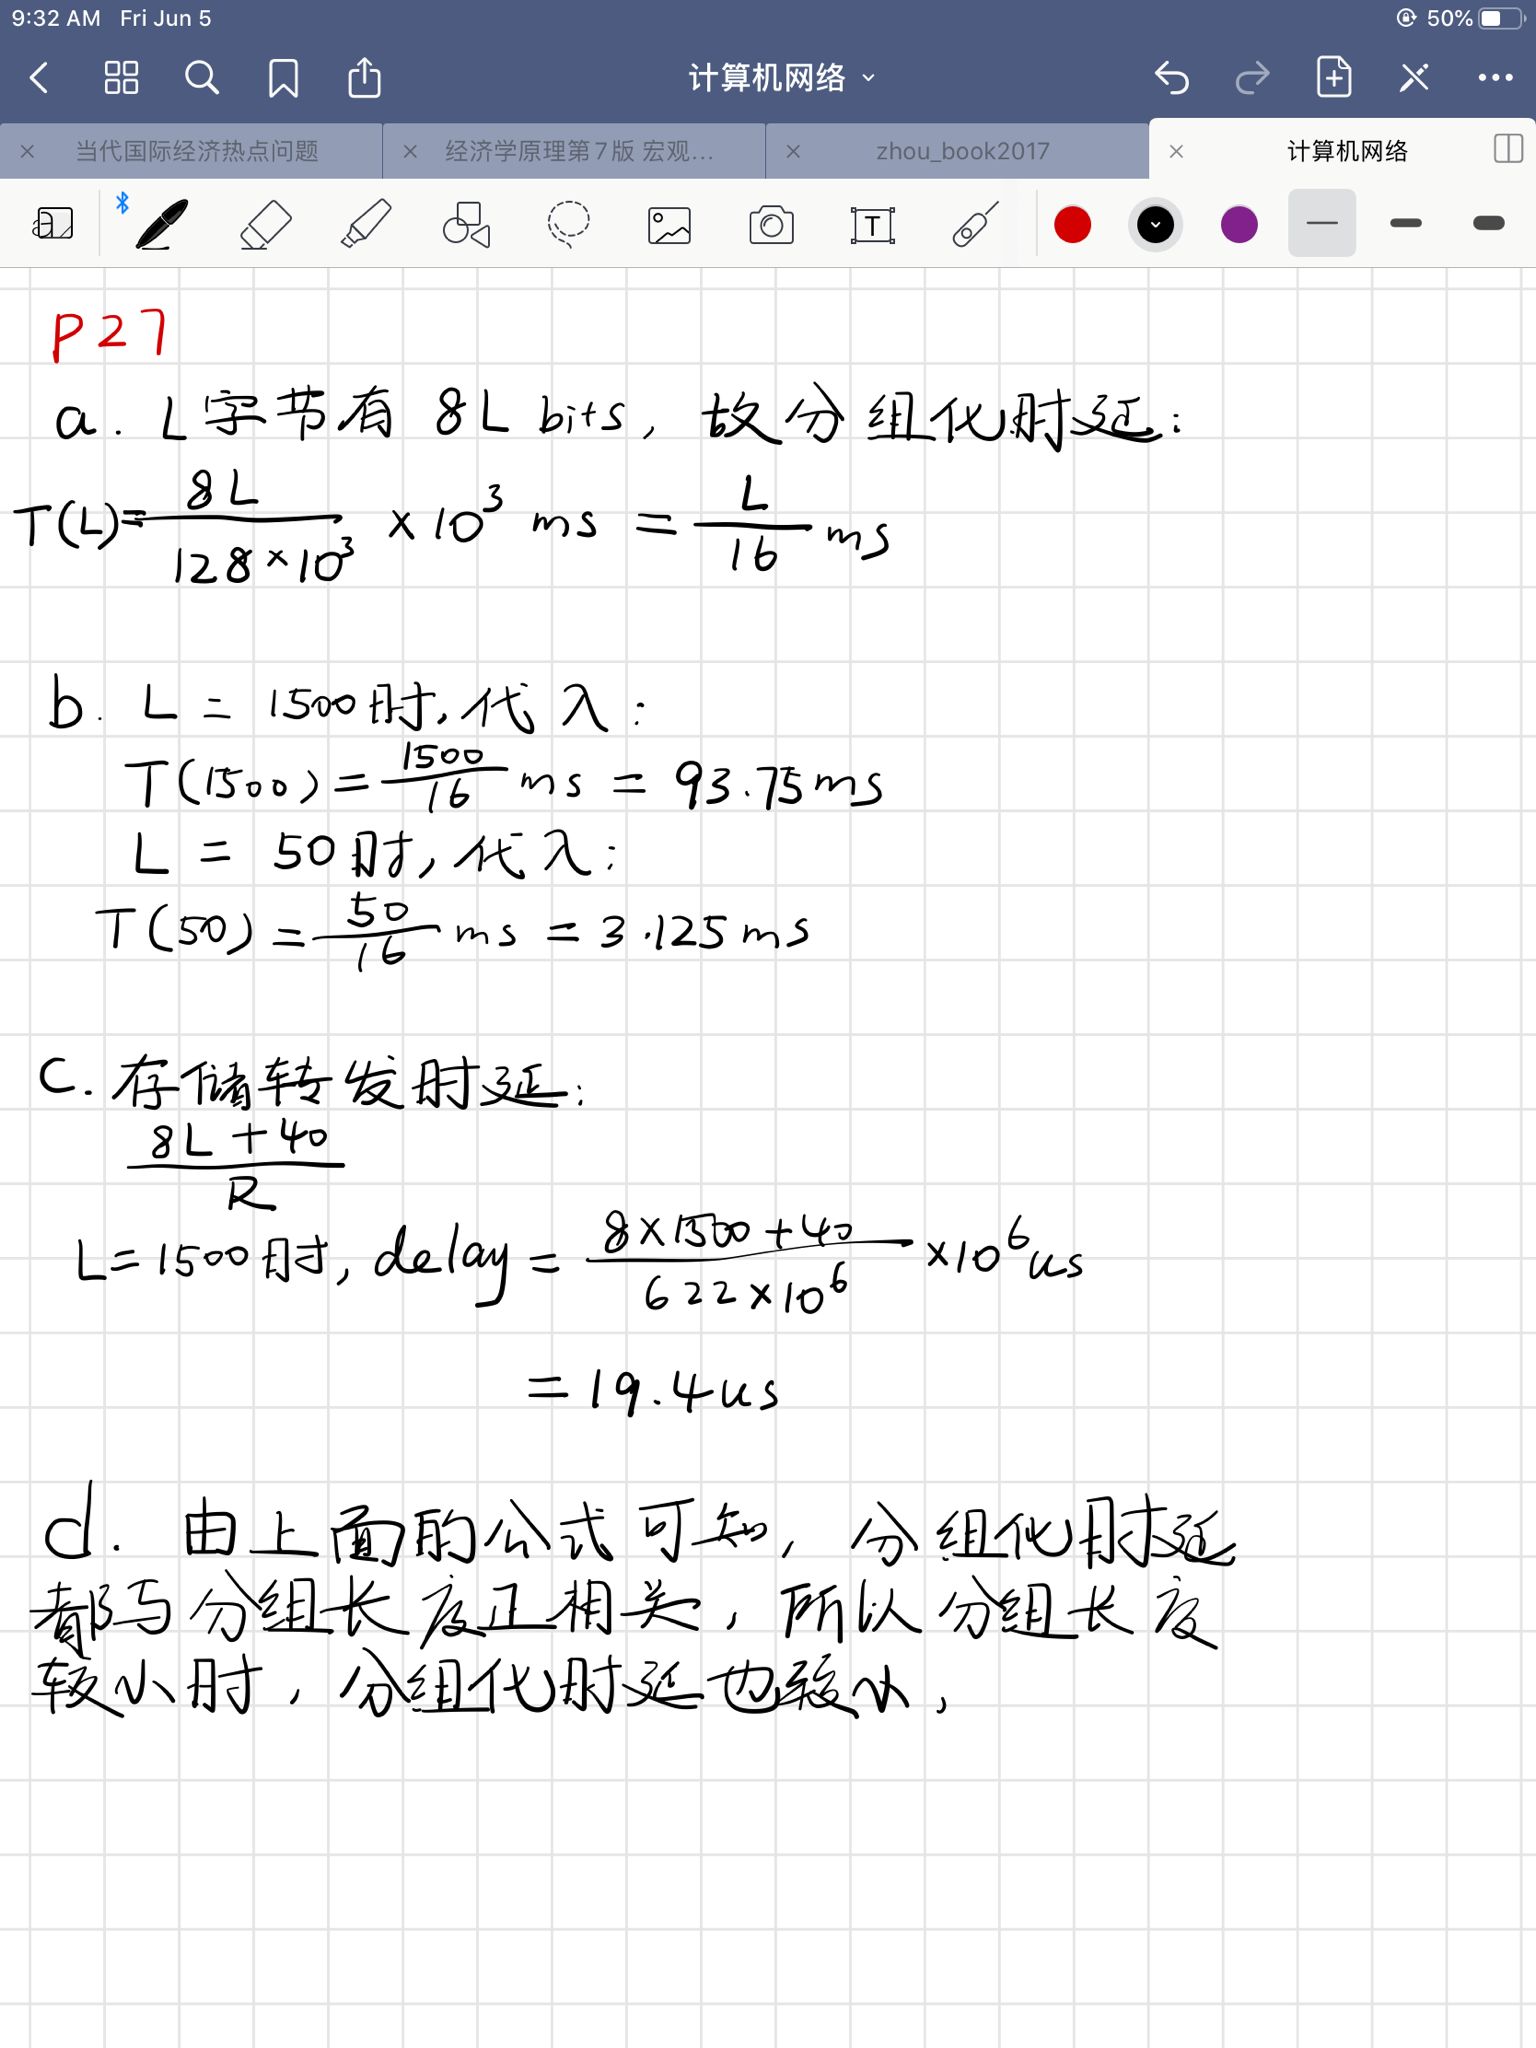 9:32 AM Fri Jun 5
50%
计算机网络
当代国际经济热点问题
经济学原理第7版 宏观...
zhou_book2017
计算机网络
P27
a. L字节有 8L bits, 故分组化时延:
T(L)= 8L / 128×10³ ×10³ ms = L / 16 ms
b. L = 1500时,代入:
T(1500) = 1500 / 16 ms = 93.75ms
L = 50时,代入:
T(50) = 50 / 16 ms = 3.125ms
c. 存储转发时延:
8L+40 / R
L=1500时, delay = 8×1500+40 / 622×10⁶ ×10⁶us
= 19.4us
d. 由上面的公式可知, 分组化时延
都与分组长度正相关, 所以分组长度
较小时, 分组化时延也较小,